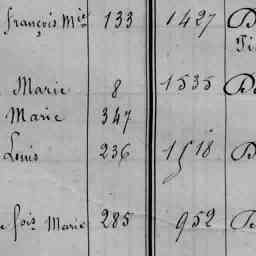 françois Mie 133 1427
Marie 8 1535
Marie 347
Louis 236 1518
fois Marie 285 952